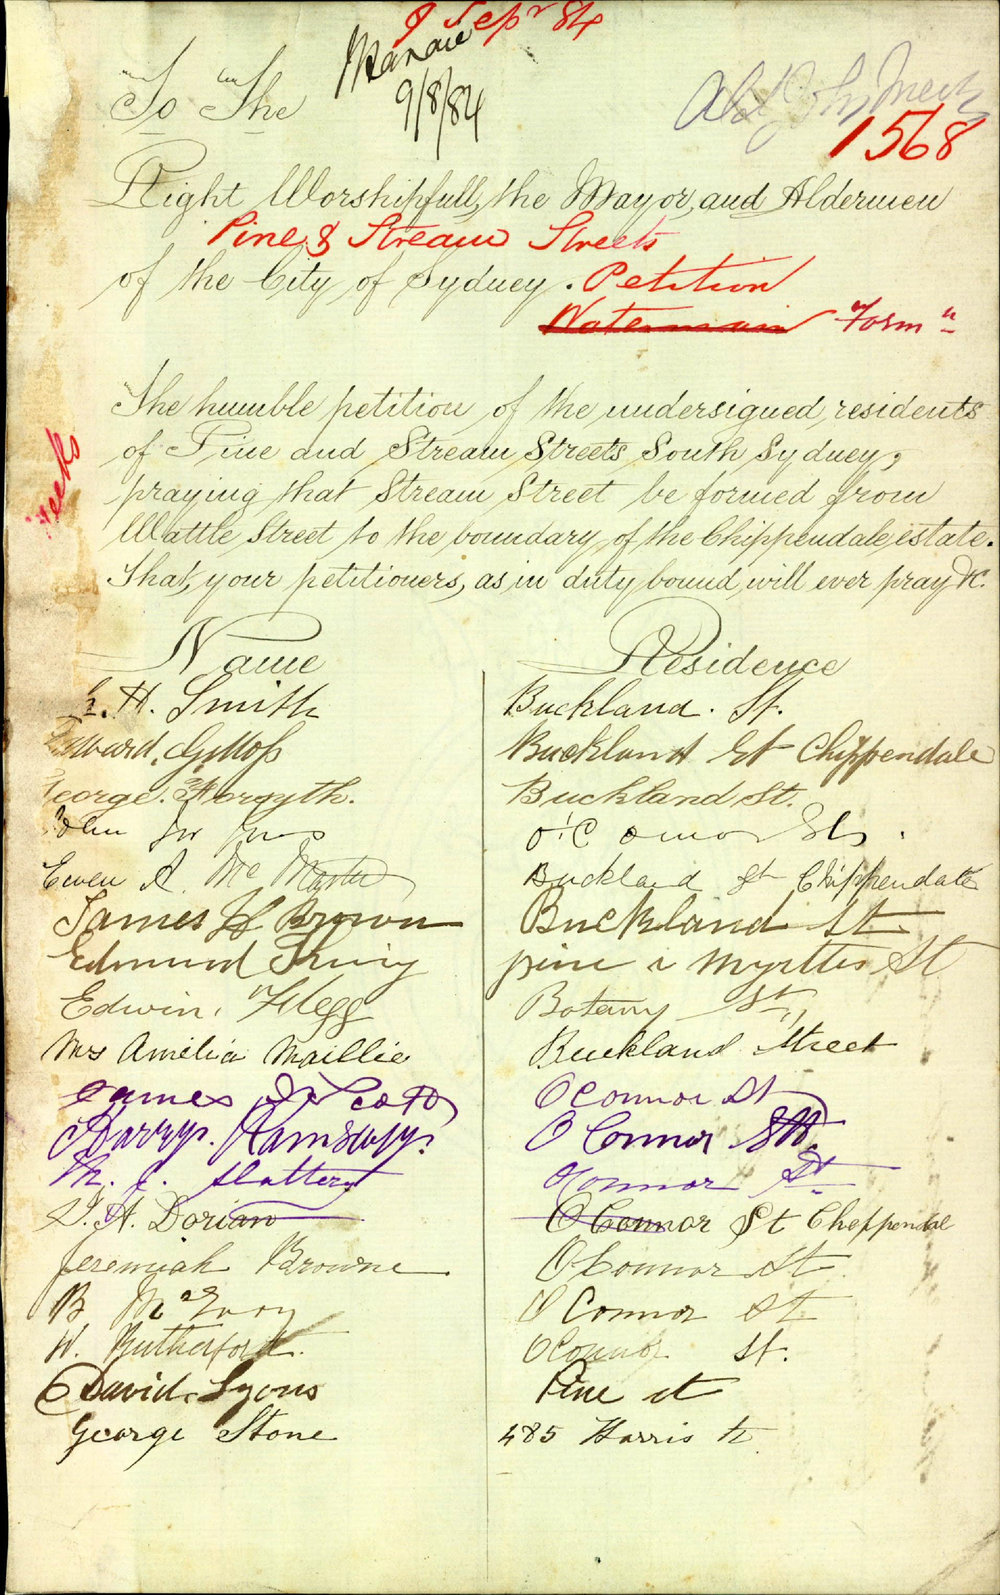 9 Sepr 84
9/8/84
To The
1568
Right Worshipfull, the Mayor, and Aldermen
Pine & Stream Streets
of the City of Sydney. Petition
Watermain "Form"
The humble petition of the undersigned, residents
of Pine and Stream Streets South Sydney,
praying that Stream Street be formed from
Wattle Street to the boundary of the Chippendale estate.
That, your petitioners, as in duty bound, will ever pray &c.
Name Residence
H. Smith Buckland. St.
Edward. Buckland St Chippendale
George. Forsyth. Buckland St.
John
Ewen A. Mc Master Buckland St Chippendale
James H Brown Buckland St
Edmund King pine & Myrtle St
Edwin. Flegg Botany St
Mrs Amelia Maillie Buckland Street
James Scott O Connor St
Harry. Ramsay. O Connor St
M. J. Slattery O Connor St
A. Dorian O Connor St Chippendale
Jeremiah Browne O Connor St
B McEvoy O Connor St
W. Rutherford. O Connor St.
David. Lyons Pine st
George Stone 485 Harris St